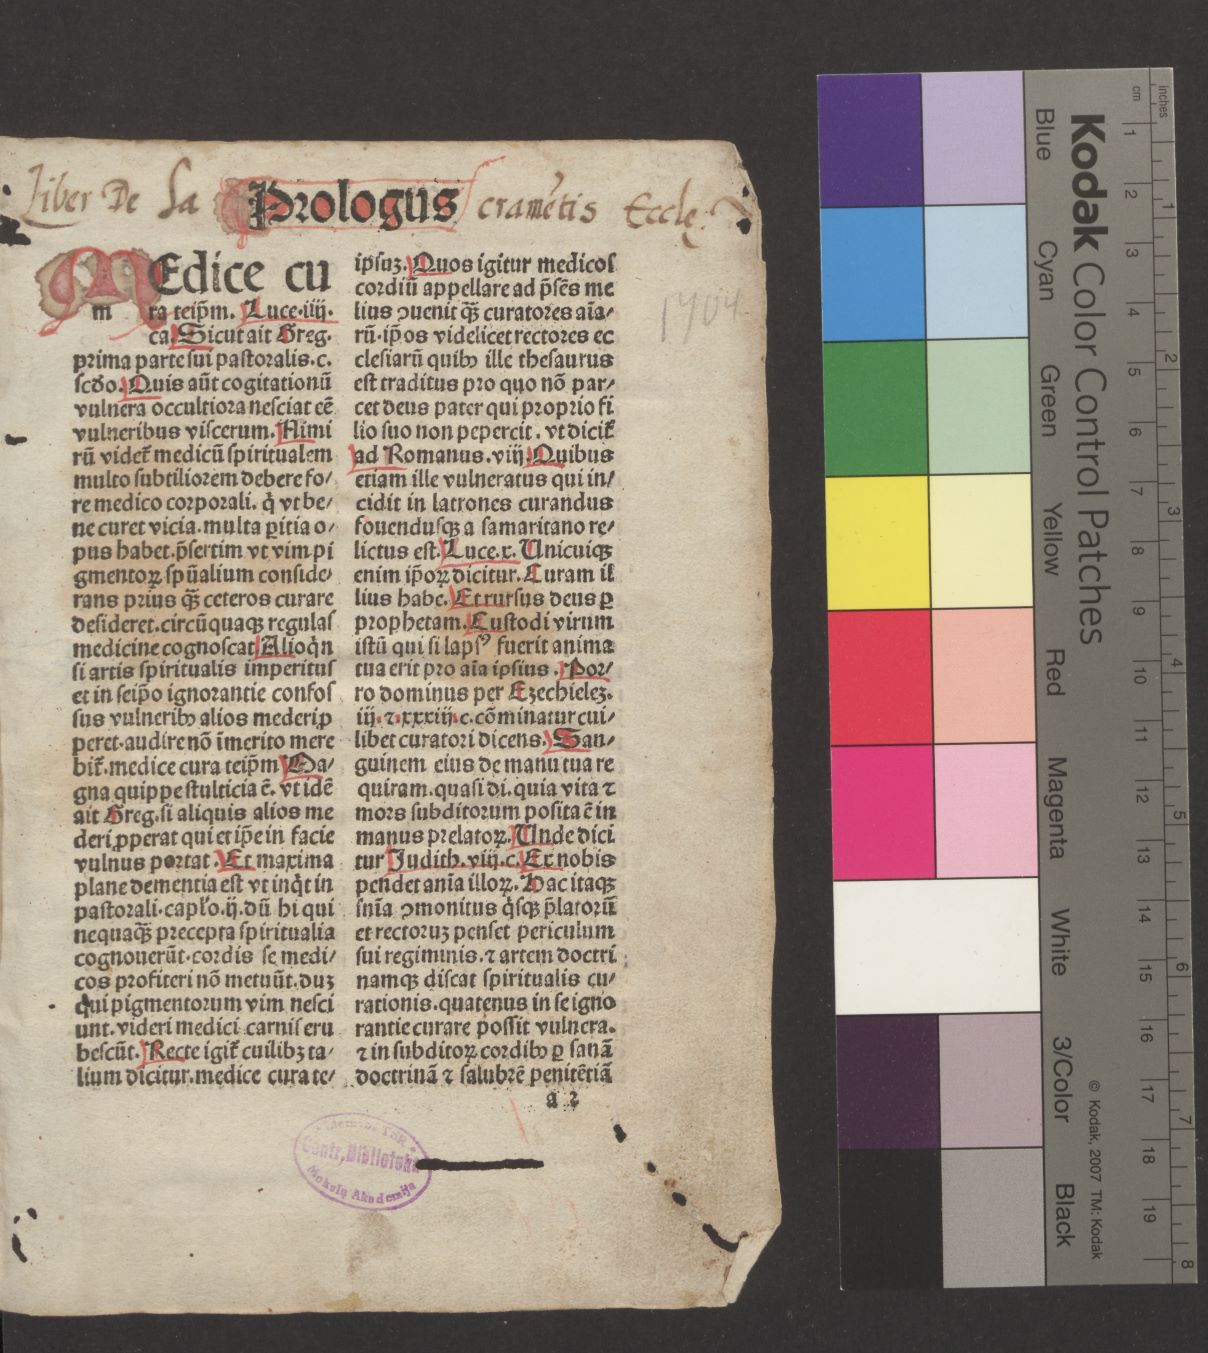 Liber De Sa Prologus cramētis Eccle.
MEdice cu
m ra teip̄m. Luce.iiij.
ca. Sicut ait Greg.
prima parte sui pastoralis.c.
scd̄o. Quis aūt cogitationū
vulnera occultiora nesciat eē
vulneribus viscerum. Nimi
rū videt̄ medicū spiritualem
multo subtiliorem debere fo/
re medico corporali. q̇ vt be/
ne curet vicia. multa ꝑitia o/
pus habet. p̄sertim vt vim pi
gmentoꝝ spūalium conside/
rans prius qꝫ̄ ceteros curare
desideret. circūquaqꝫ regulas
medicine cognoscat Alioqͥn
si artis spiritualis imperitus
et in seip̄o ignorantie confos
sus vulneribꝰ alios mederi ꝓ
peret. audire nō īmerito mere
bit̄. medice cura teip̄m Ma/
gna quippe stulticia ē. vt idē
ait Greg. si aliquis alios me
deri ꝓperat qui et ip̄e in facie
vulnus portat. Et maxima
plane dementia est vt inqͥt in
pastorali. cap̄lo. ij. dū hi qui
nequaqꝫ̄ precepta spiritualia
cognouerūt. cordis se medi/
cos profiteri nō metuūt. duꝫ
qui pigmentorum vim nesci
unt. videri medici carnis eru
bescūt. Recte igit̄ cuilibꝫ ta/
lium dicitur. medice cura te/
ipsuꝫ. Quos igitur medicos
cordiū appellare ad p̄sēs me
lius ꝯuenit qꝫ̄ curatores aīa/
rū. ip̄os videlicet rectores ec
clesiarū quibꝰ ille thesaurus
est traditus pro quo nō par/
cet deus pater qui proprio fi
lio suo non pepercit. vt dicit̄
ad Romanus. viij. Quibus
etiam ille vulneratus qui in/
cidit in latrones curandus
fouendusqꝫ a samaritano re/
lictus est. Luce.x. Unicuiqꝫ
enim ip̄oꝝ dicitur. Curam il
lius habe. Et rursus deus ꝑ
prophetam. Custodi virum
istū qui si lapsꝰ fuerit anima
tua erit pro aīa ipsius. Por/
ro dominus per Ezechieleꝫ.
iij. ⁊. xxxiij. c. cōminatur cui/
libet curatori dicens. San/
guinem eius de manu tua re
quiram. quasi di. quia vita ⁊
mors subditorum posita ē in
manus prelatoꝝ. Unde dici
tur Judith. viij. c. Ex nobis
pendet anīa illoꝝ. Hac itaqꝫ
snīa ꝯmonitus qͥsqꝫ p̄latorū
et rectoruꝫ penset periculum
sui regiminis. ⁊ artem doctri
namqꝫ discat spiritualis cu/
rationis. quatenus in se igno
rantie curare possit vulnera.
⁊ in subditoꝝ cordibꝰ ꝑ sanā
doctrinā ⁊ salubrē penitētiā
a 2
1704
Centr. Biblioteka
Mokslų Akademija
Kodak Color Control Patches
Blue
Cyan
Green
Yellow
Red
Magenta
White
3/Color
Black
© Kodak, 2007 TM: Kodak
cm 1 2 3 4 5 6 7 8 9 10 11 12 13 14 15 16 17 18 19
inches 1 2 3 4 5 6 7 8